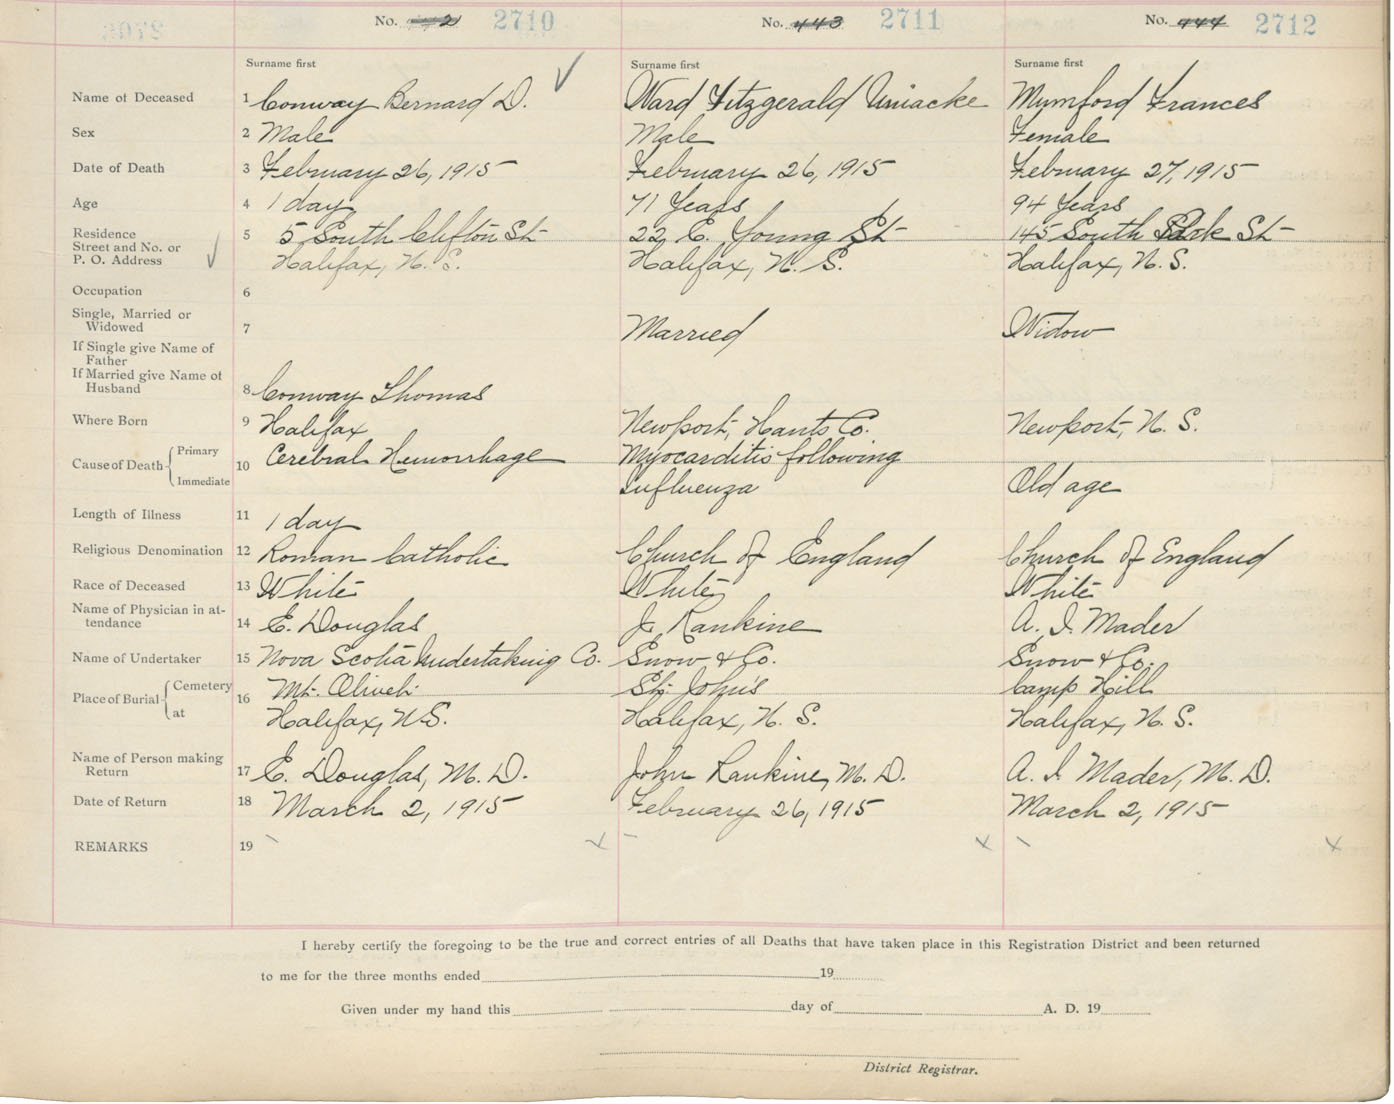 No. 2710 No. 443 2711 No. 444 2712
Surname first Surname first Surname first
Name of Deceased 1 Conway Bernard D. Ward Fitzgerald Uniacke Mumford Frances
Sex 2 Male Male Female
Date of Death 3 February 26, 1915 February 26, 1915 February 27, 1915
Age 4 1 day 71 Years 94 Years
Residence
Street and No. or 5 5 South Clifton St 22 E. Young St 145 South Park St
P. O. Address Halifax, N. S. Halifax, N. S. Halifax, N. S.
Occupation 6
Single, Married or
Widowed 7 Married Widow
If Single give Name of
Father
If Married give Name of
Husband 8 Conway Thomas
Where Born 9 Halifax Newport, Hants Co. Newport, N. S.
Cause of Death Primary 10 Cerebral Hemorrhage Myocarditis following
Immediate Influenza Old age
Length of Illness 11 1 day
Religious Denomination 12 Roman Catholic Church of England Church of England
Race of Deceased 13 White White White
Name of Physician in at-
tendance 14 E. Douglas J. Rankine A. I. Mader
Name of Undertaker 15 Nova Scotia Undertaking Co. Snow & Co. Snow & Co.
Place of Burial Cemetery 16 Mt. Olivet St. John's Camp Hill
at Halifax, N.S. Halifax, N. S. Halifax, N. S.
Name of Person making
Return 17 E. Douglas, M. D. John Rankine, M. D. A. I. Mader, M. D.
Date of Return 18 March 2, 1915 February 26, 1915 March 2, 1915
REMARKS 19
I hereby certify the foregoing to be the true and correct entries of all Deaths that have taken place in this Registration District and been returned
to me for the three months ended 19
Given under my hand this day of A. D. 19
District Registrar.